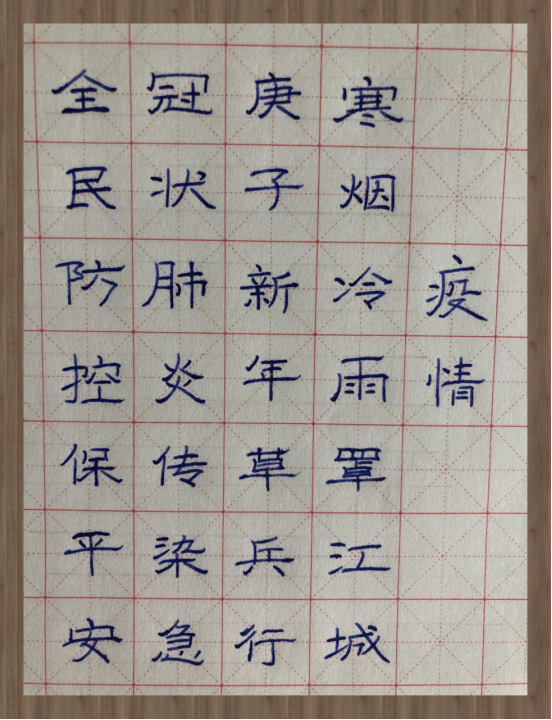 疫情
寒烟冷雨罩江城
庚子新年草兵行
冠状肺炎传染急
全民防控保平安